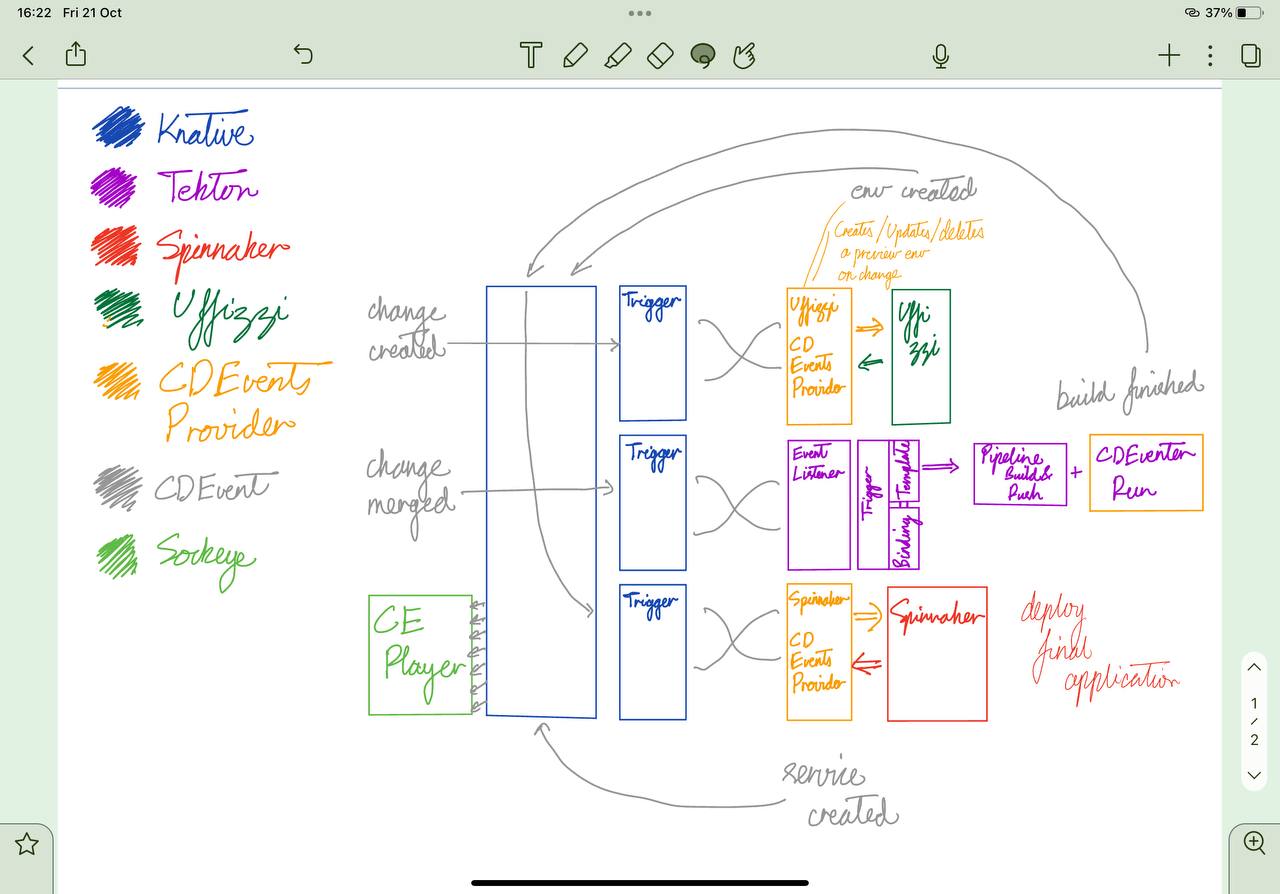 16:22 Fri 21 Oct
37%
T
Knative
Tekton
Spinnaker
Uffizzi
CDEvents
Provider
CDEvent
Sockeye
env created
Creates/Updates/deletes
a preview env
on change
change
created
Trigger
Uffizzi
CD
Events
Provider
Uffi
zzi
build finished
change
merged
Trigger
Event
Listener
Trigger
Template
Binding
Pipeline
Build &
Push
+
CDEventer
Run
CE
Player
Trigger
Spinnaker
CD
Events
Provider
Spinnaker
deploy
final
application
service
created
1
/
2